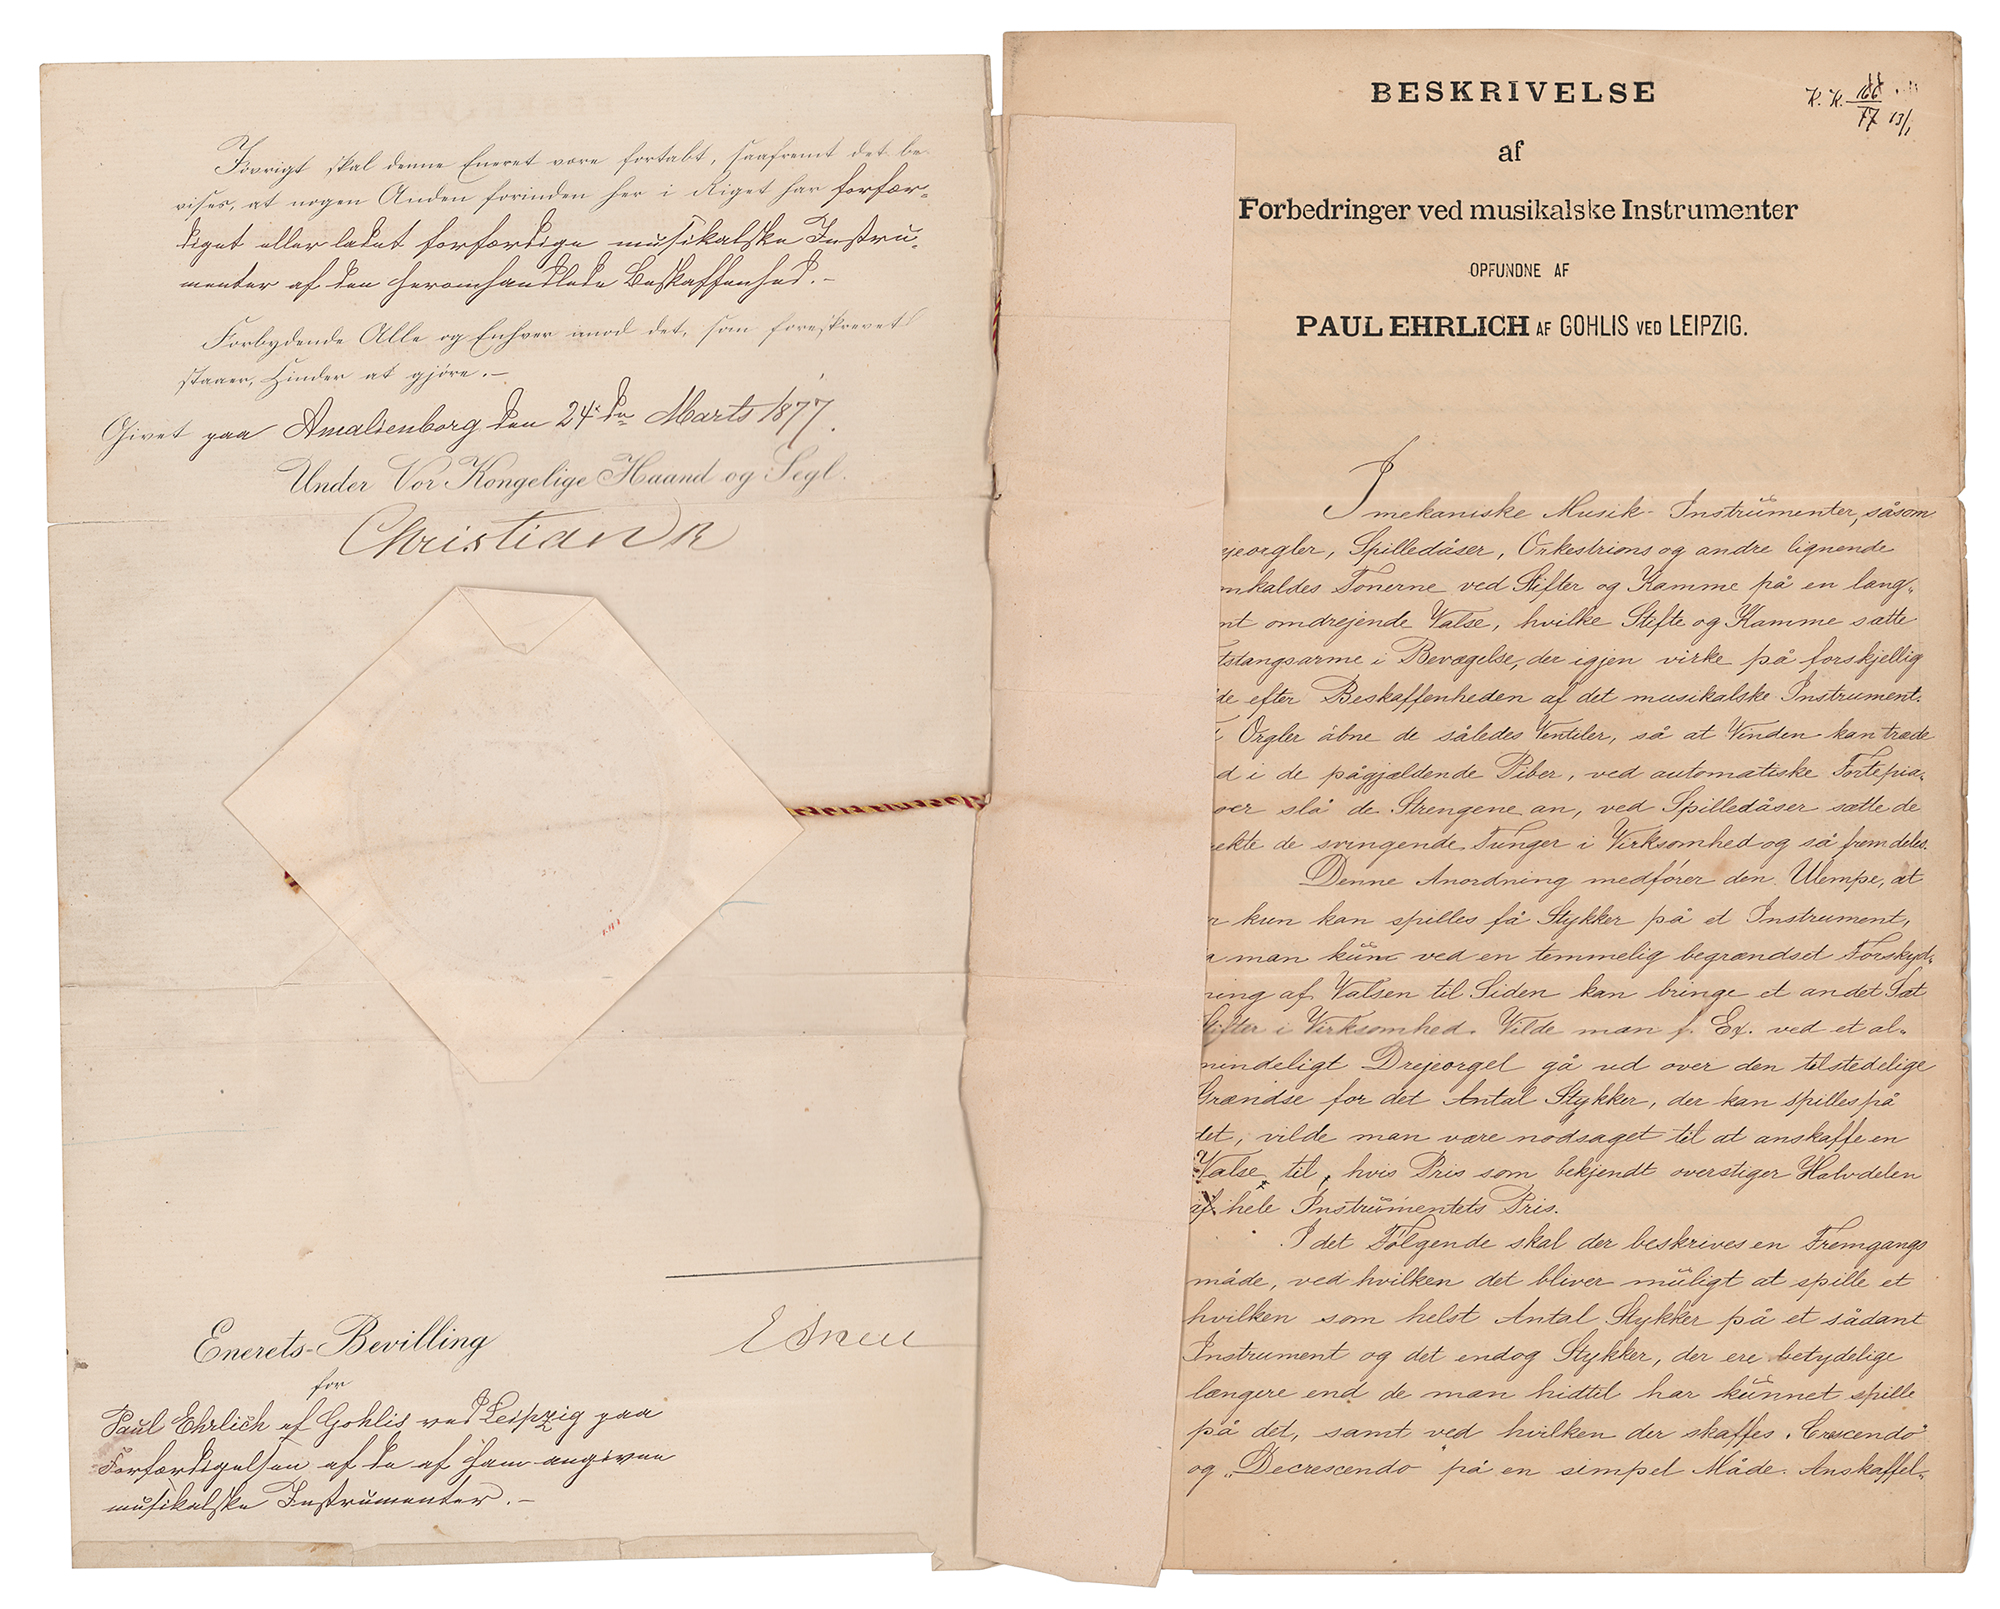 Iøvrigt skal denne Eneret være fortabt, saafremt det be-
vises, at nogen Anden forinden her i Riget har forfær-
diget eller ladet forfærdige musikalske Instru-
menter af den heromhandlede Beskaffenhed.-
Forbydende Alle og Enhver imod det, som foreskrevet
staaer, Hinder at gjøre.-
Givet paa Amalienborg den 24de Marts 1877.
Under Vor Kongelige Haand og Segl.
Christian R
Enerets-Bevilling
for
Paul Ehrlich af Gohlis ved Leipzig paa
Forfærdigelsen af de af ham angivne
musikalske Instrumenter.-
BESKRIVELSE
K. K. 166/77 13/1
af
Forbedringer ved musikalske Instrumenter
OPFUNDNE AF
PAUL EHRLICH AF GOHLIS VED LEIPZIG.
I mekaniske Musik-Instrumenter, såsom
jeorgler, Spilledåser, Orkestrions og andre lignende
mkaldes Tonerne ved Stifter og Kamme på en lang-
mt omdrejende Valse, hvilke Stifte og Kamme sætte
tstangsarme i Bevægelse, der igjen virke på forskjellig
de efter Beskaffenheden af det musikalske Instrument.
Orgler åbne de således Ventiler, så at Vinden kan træde
d i de pågjældende Piber, ved automatiske Fortepia-
oer slå de Strengene an, ved Spilledåser sætte de
ekte de svingende Tunger i Virksomhed og så fremdeles.
Denne Anordning medfører den Ulempe, at
n kun kan spilles få Stykker på et Instrument,
a man kun ved en temmelig begrændset Forskyd-
ning af Valsen til Siden kan bringe et andet Sæt
Stifter i Virksomhed. Vilde man f. Ex. ved et al-
mindeligt Drejeorgel gå ud over den tilstedelige
Grændse for det Antal Stykker, der kan spilles på
det, vilde man være nødsaget til at anskaffe en
Valse til, hvis Pris som bekjendt overstiger Halvdelen
af hele Instrumentets Pris.
I det Følgende skal der beskrives en Fremgangs
måde, ved hvilken det bliver muligt at spille et
hvilken som helst Antal Stykker på et sådant
Instrument og det endog Stykker, der ere betydelige
længere end de man hidtil har kunnet spille
på det, samt ved hvilken der skaffes „Crescendo"
og „Decrescendo" på en simpel Måde. Anskaffel-